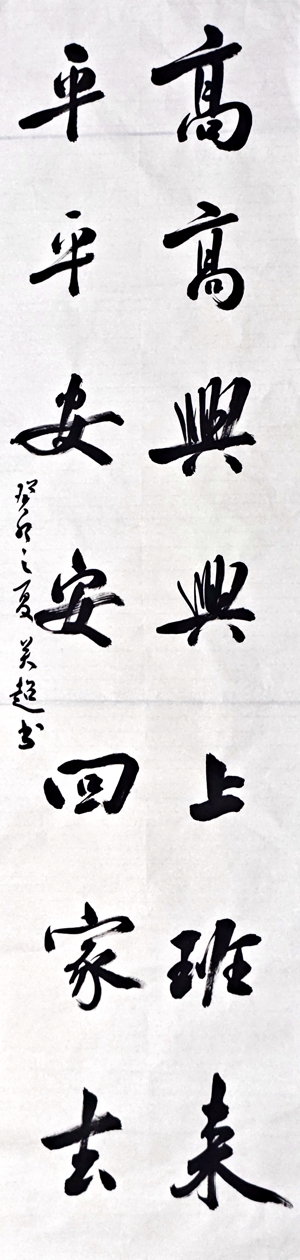 高高興興上班来
平平安安回家去
癸卯之夏吴超书